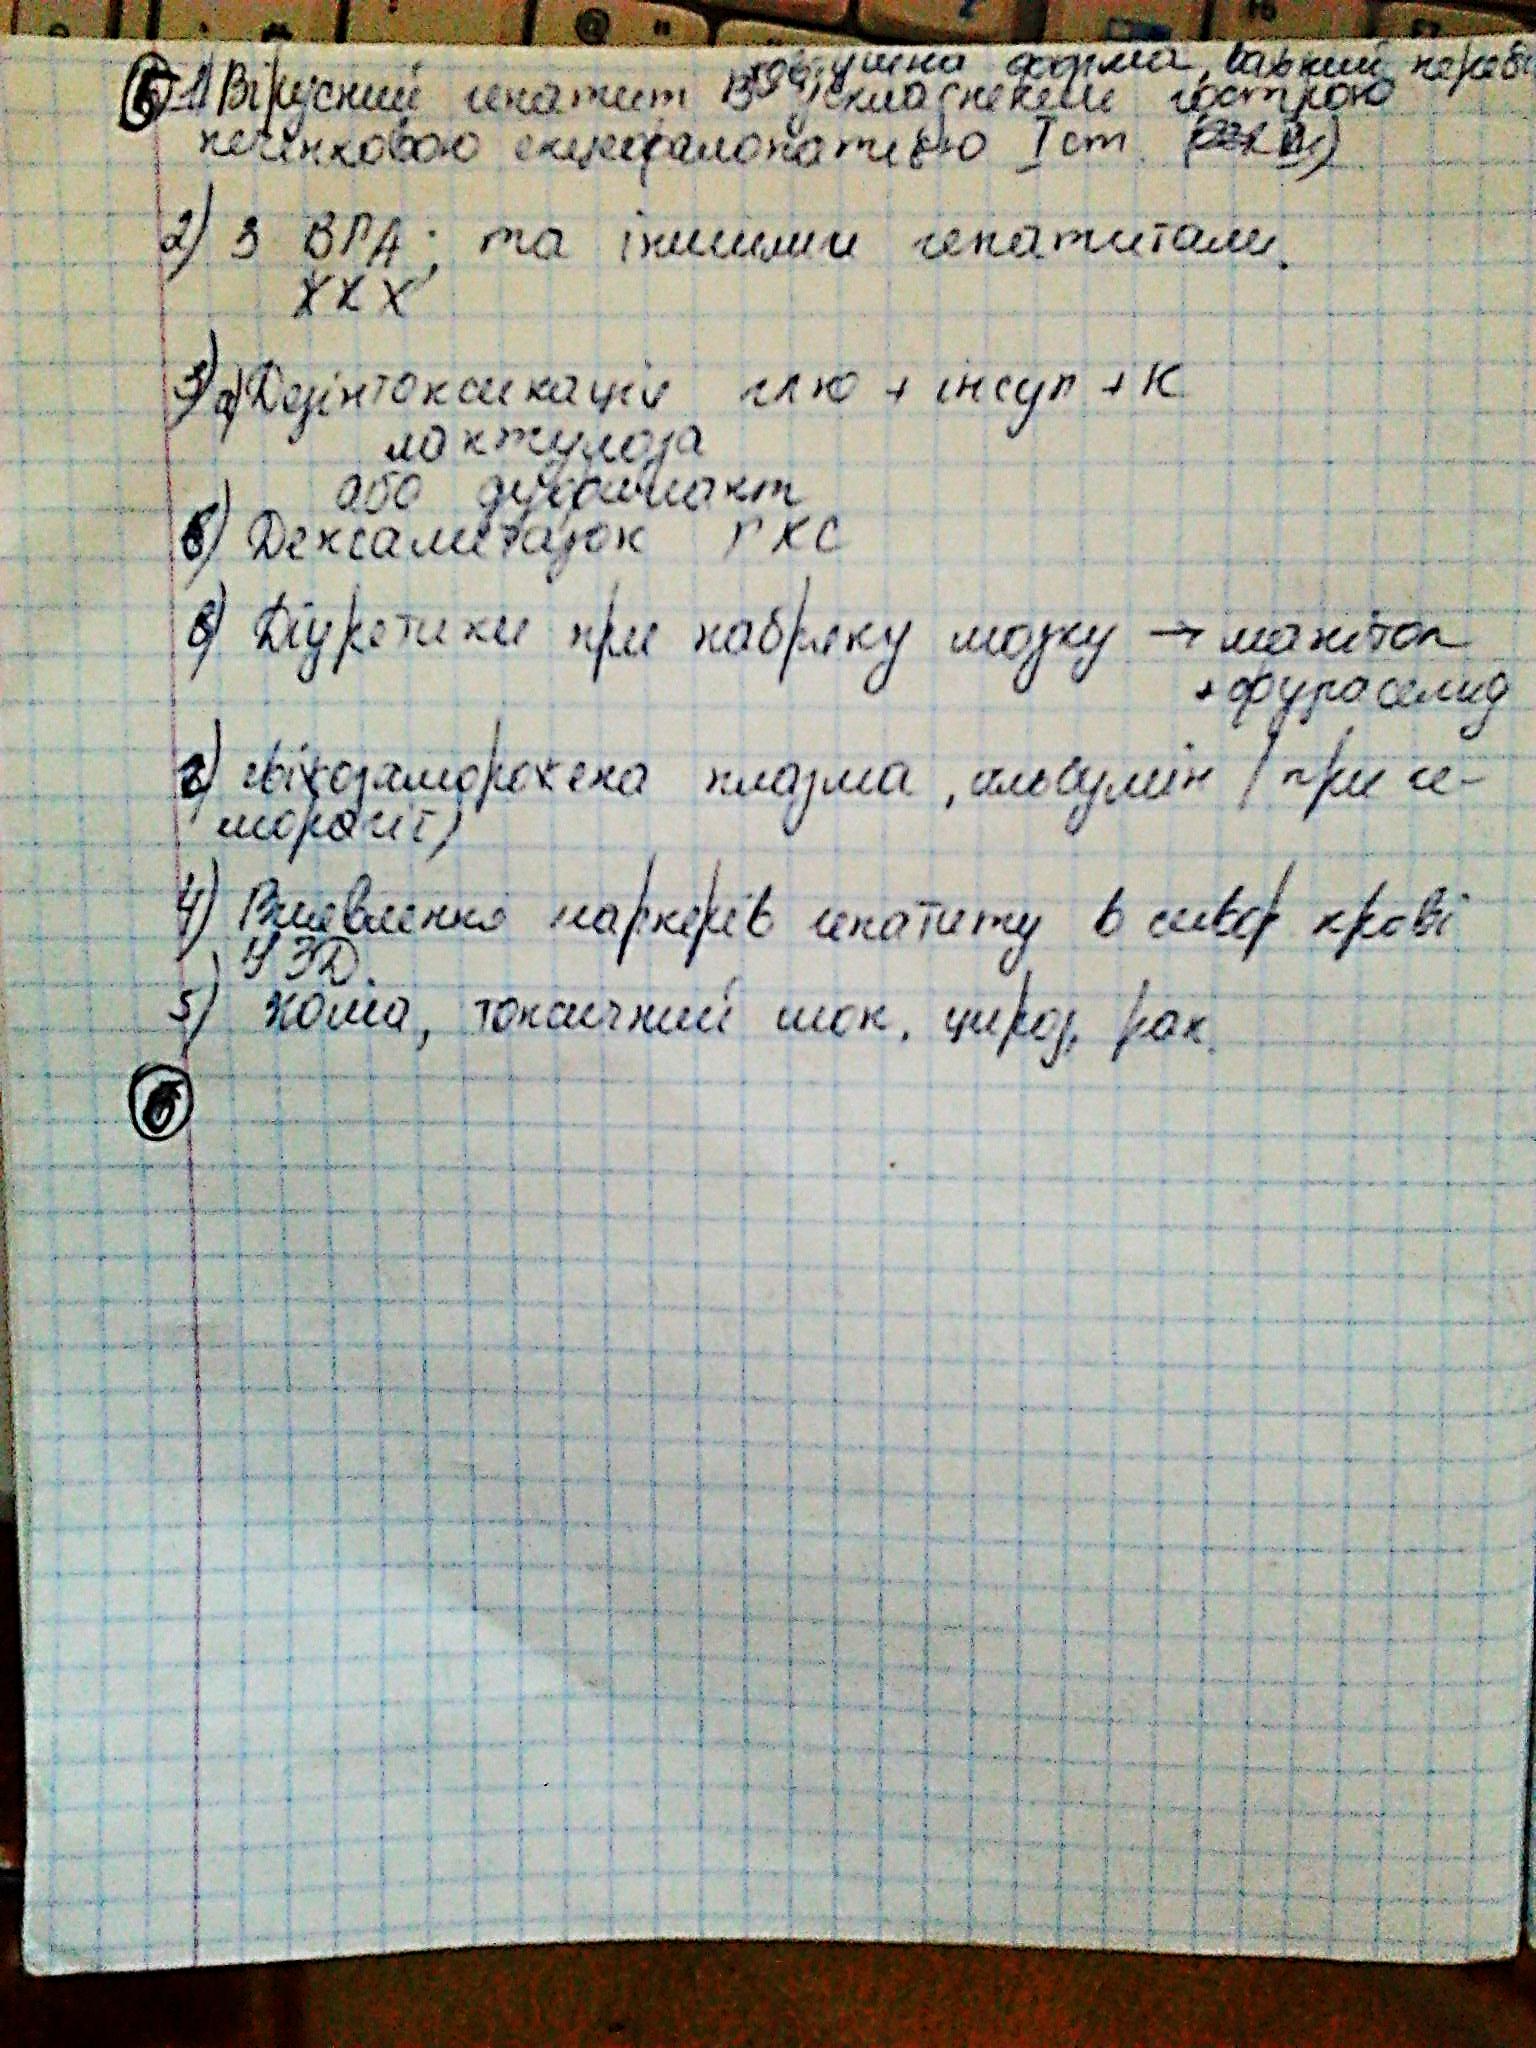 5 1) Вірусний гепатит В, ускладнений гострою
жовтушна форма, важкий перебі
печінковою енцефалопатією І ст.
2) З ВГА; та іншими гепатитами.
ЖКХ
3) а) Дезінтоксикація глю + інсул + К
лактулоза
або дуфалакт
б) Дексаметазон ГКС
в) Діуретики при набряку мозку → манітол
+ фуросемид
г) свіжозаморожена плазма, альбумін (при ге-
морагії)
4) Виявлення маркерів гепатиту в сивор крові
УЗД.
5) Кома, токсичний шок, цироз, рак.
6